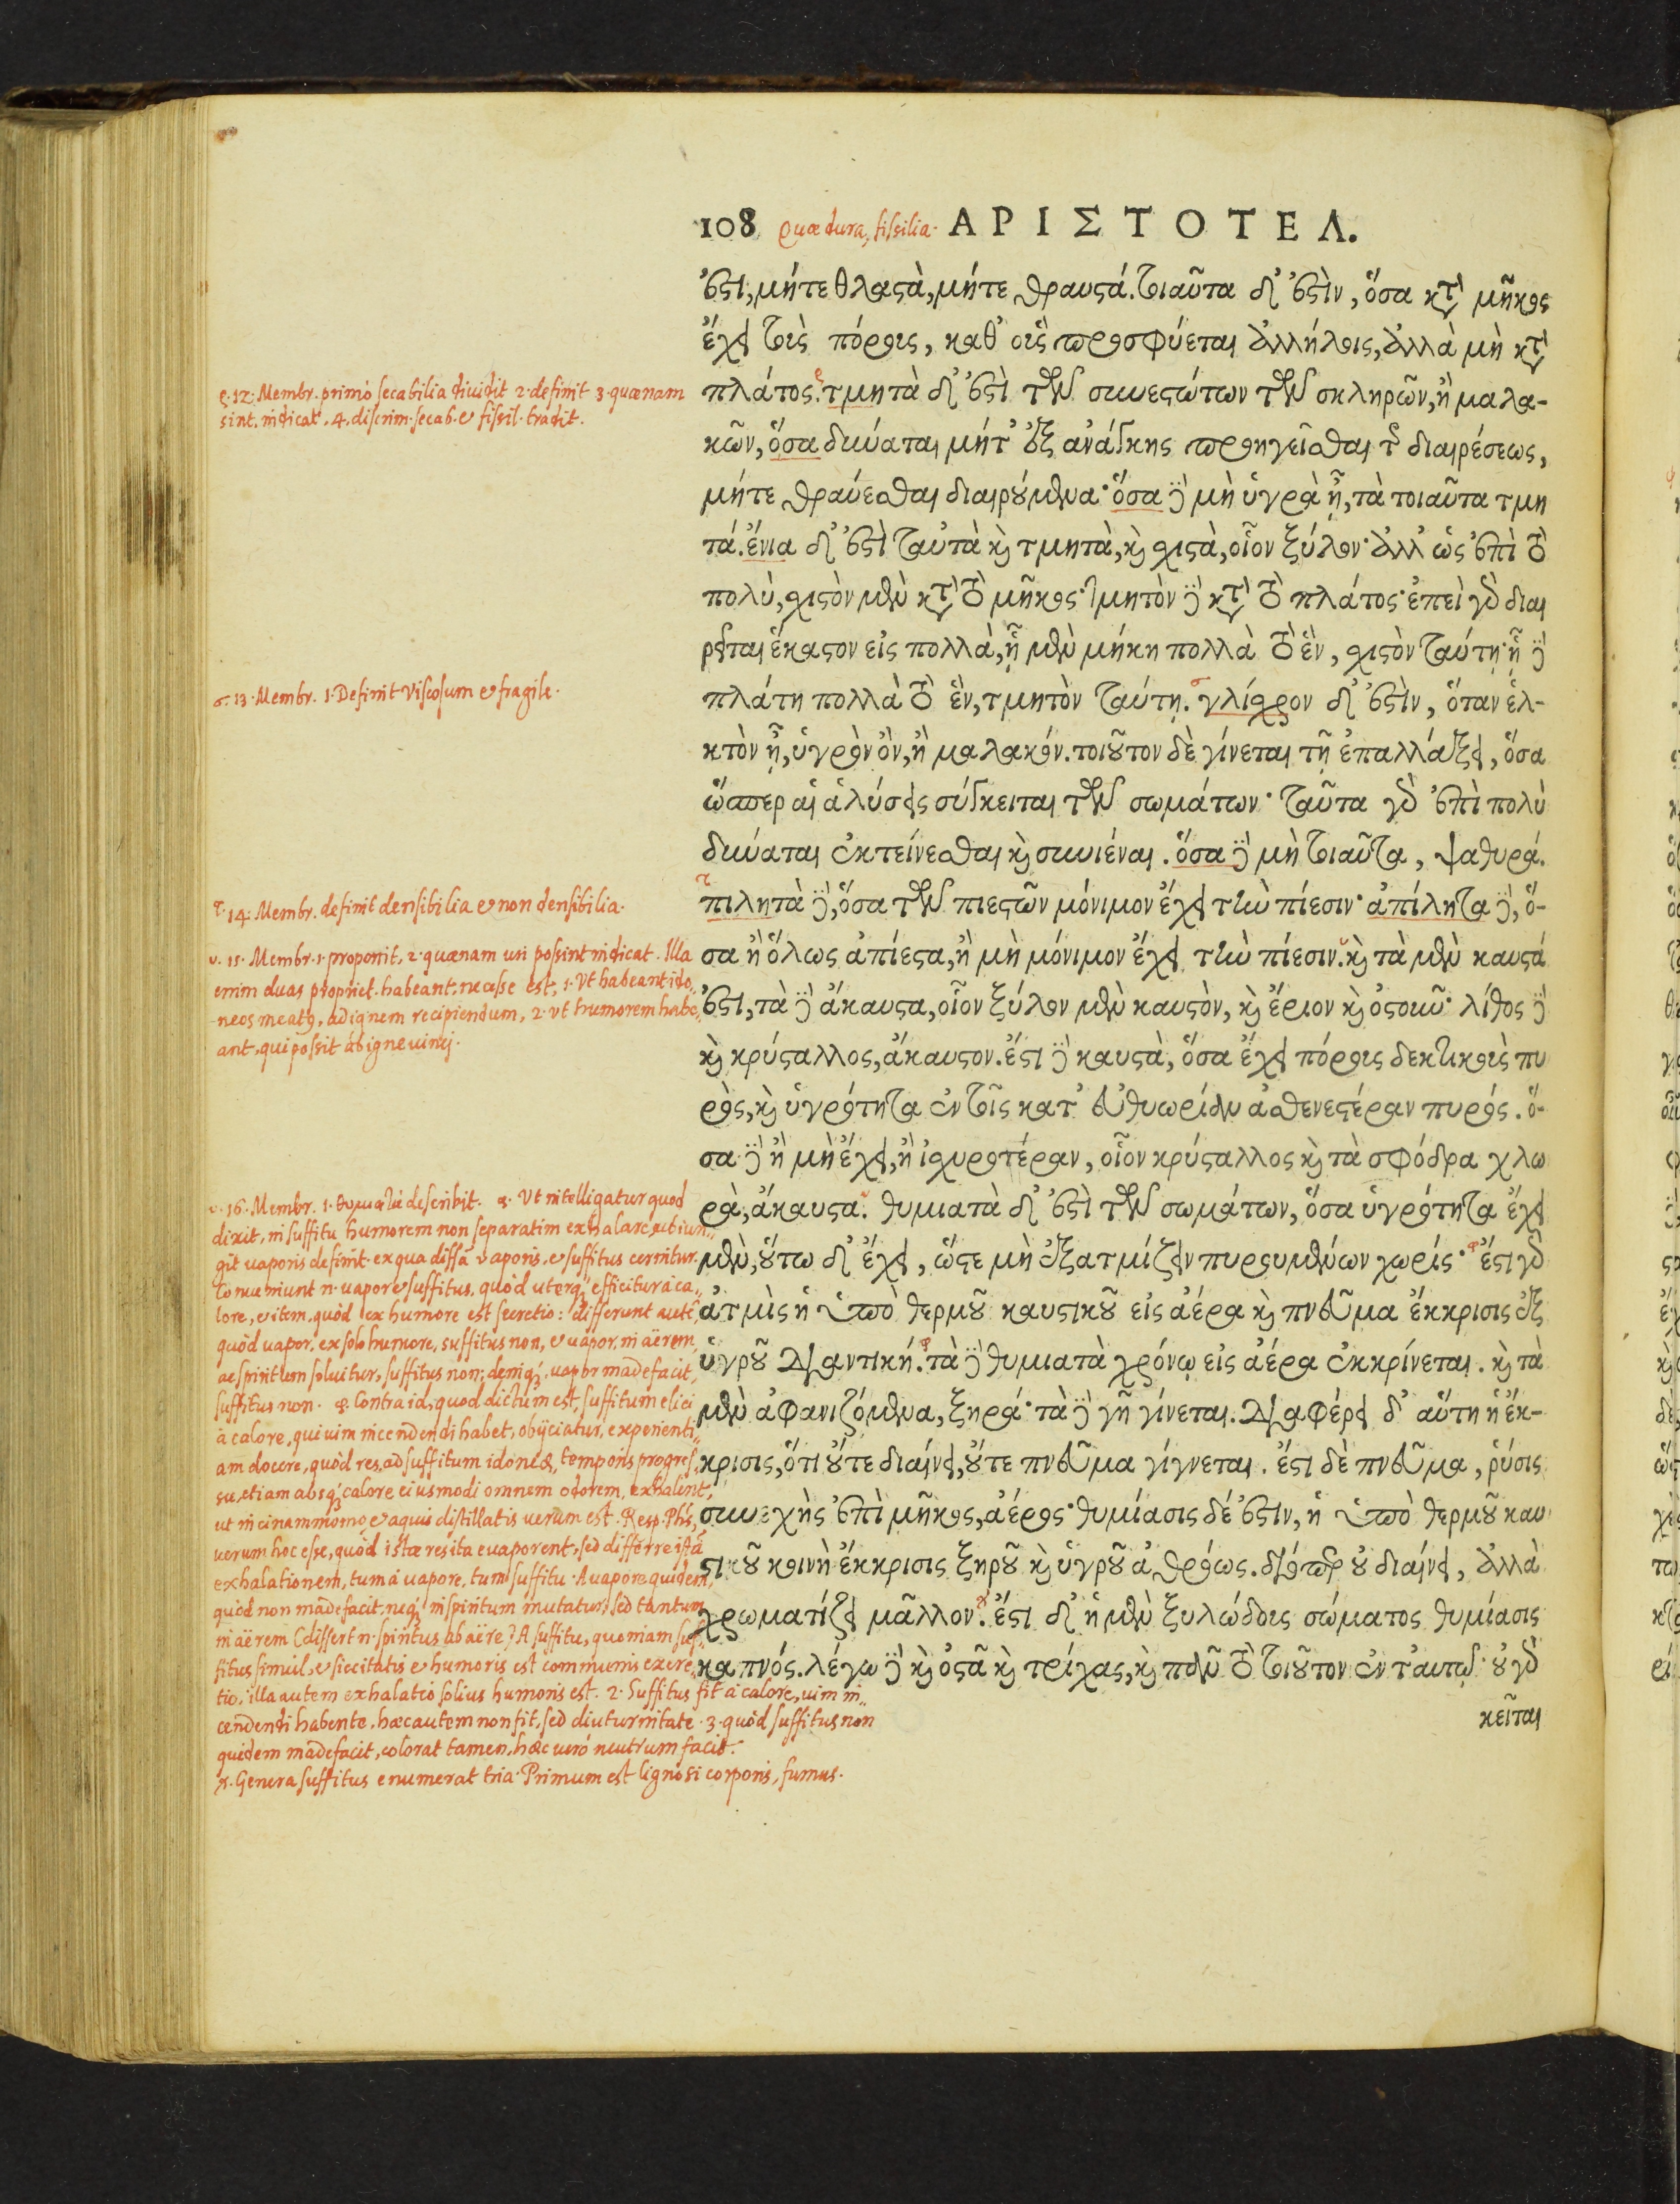 108 quæ dura, fissilia. ΑΡΙΣΤΟΤΕΛ.
ἐστι, μήτε θλαστὰ, μήτε θραυστά. τοιαῦτα δ' ἐστὶν, ὅσα κτ' μῆκος
ἔχει τοὺς πόρους, καθ' οὓς προσφύεται ἀλλήλοις, ἀλλὰ μὴ κτ'
πλάτος. τμητὰ δ' ἐστὶ τῶν συνεστώτων τῶν σκληρῶν, ἢ μαλα-
κῶν, ὅσα δύναται μήτ' ἐξ ἀνάγκης προηγεῖσθαι τῆς διαιρέσεως,
μήτε θραύεσθαι διαιρούμενα· ὅσα δὲ μὴ ὑγρὰ ᾖ, τὰ τοιαῦτα τμη
τά. ἔνια δ' ἐστὶ ταὐτὰ καὶ τμητὰ, καὶ σχιστὰ, οἷον ξύλον· ἀλλ' ὡς ἐπὶ τὸ
πολὺ, σχιστὸν μὲν κτ' τὸ μῆκος· τμητὸν δὲ κτ' τὸ πλάτος· ἐπεὶ γὰρ διαι
ρεῖται ἕκαστον εἰς πολλὰ, ᾗ μὲν μήκη πολλὰ τὸ ἓν, σχιστὸν ταύτῃ· ᾗ δὲ
πλάτη πολλὰ τὸ ἓν, τμητὸν ταύτῃ. γλίσχρον δ' ἐστὶν, ὅταν ἑλ-
κτὸν ᾖ, ὑγρὸν ὂν, ἢ μαλακόν. τοιοῦτον δὲ γίνεται τῇ ἐπαλλάξει, ὅσα
ὥσπερ αἱ ἁλύσεις σύγκειται τῶν σωμάτων· ταῦτα γὰρ ἐπὶ πολὺ
δύναται ἐκτείνεσθαι καὶ συνιέναι. ὅσα δὲ μὴ τοιαῦτα, ψαθυρά.
πιλητὰ δὲ, ὅσα τῶν πιεστῶν μόνιμον ἔχει τὴν πίεσιν· ἀπίλητα δὲ, ὅ-
σα ἢ ὅλως ἀπίεστα, ἢ μὴ μόνιμον ἔχει τὴν πίεσιν. καὶ τὰ μὲν καυστά
ἐστι, τὰ δὲ ἄκαυστα, οἷον ξύλον μὲν καυστὸν, καὶ ἔριον καὶ ὀστοῦν· λίθος δὲ
καὶ κρύσταλλος, ἄκαυστον. ἔστι δὲ καυστὰ, ὅσα ἔχει πόρους δεκτικοὺς πυ
ρὸς, καὶ ὑγρότητα ἐν τοῖς κατ' εὐθυωρίαν ἀσθενεστέραν πυρός. ὅ-
σα δὲ ἢ μὴ ἔχει, ἢ ἰσχυροτέραν, οἷον κρύσταλλος καὶ τὰ σφόδρα χλω
ρὰ, ἄκαυστα. θυμιατὰ δ' ἐστὶ τῶν σωμάτων, ὅσα ὑγρότητα ἔχει
μὲν, οὕτω δ' ἔχει, ὥστε μὴ ἐξατμίζειν πυρουμένων χωρίς· ἔστι γὰρ
ἀτμὶς ἡ ὑπὸ θερμοῦ καυστικοῦ εἰς ἀέρα καὶ πνεῦμα ἔκκρισις ἐξ
ὑγροῦ διαντική. τὰ δὲ θυμιατὰ χρόνῳ εἰς ἀέρα ἐκκρίνεται. καὶ τὰ
μὲν ἀφανιζόμενα, ξηρά· τὰ δὲ γῆ γίνεται. διαφέρει δ' αὕτη ἡ ἔκ-
κρισις, ὅτι οὔτε διαίνει, οὔτε πνεῦμα γίγνεται. ἔστι δὲ πνεῦμα, ῥύσις
συνεχὴς ἐπὶ μῆκος, ἀέρος· θυμίασις δέ ἐστιν, ἡ ὑπὸ θερμοῦ καυ
στικοῦ κοινὴ ἔκκρισις ξηροῦ καὶ ὑγροῦ ἀθρόως. διόπερ οὐ διαίνει, ἀλλὰ
χρωματίζει μᾶλλον. ἔστι δ' ἡ μὲν ξυλώδους σώματος θυμίασις
καπνός. λέγω δὲ καὶ ὀστᾶ καὶ τρίχας, καὶ πᾶν τὸ τοιοῦτον ἐν ταυτῷ· οὐ γὰρ
κεῖται
ρ. 12. Membr. primò secabilia diuidit 2. definit 3. quænam
sint, indicat. 4. discrim. secab. & fissil. tradit.
σ. 13. Membr. 1. Definit viscosum & fragile.
τ. 14. Membr. definit densibilia & non densibilia.
υ. 15. Membr. 1. proponit, 2. quænam uri possint indicat. Illa
enim duas propriet. habeant, necesse est, 1. Vt habeant ido„
neos meatus, ad ignem recipiendum, 2. vt humorem habe„
ant, qui possit ab igne uinci.
υ. 16. Membr. 1. θυμιατὰ describit. 2. Vt intelligatur quod
dixit, in suffitu humorem non separatim exhalare, adiun„
git uaporis definit. ex qua differentia vaporis, & suffitus cernitur.
Conueniunt n. uapor & suffitus, quòd uterque efficitur à ca„
lore, & item, quòd ex humore est secretio: differunt autem,
quòd uapor, ex solo humore, suffitus non, & uapor, in aërem
ac spiritum soluitur, suffitus non; denique, uapor madefacit,
suffitus non. φ. Contra id, quod dictum est, suffitum elici
à calore, qui uim incendendi habet, obijciatur, experienti„
am docere, quòd res, ad suffitum idoneæ, temporis progres„
su, etiam absque calore eiusmodi omnem odorem, exhalent,
ut in cinnammomo, & aquis distillatis uerum est. Resp. Phs,
uerum hoc esse, quòd istæ res ita euaporent, sed differre istā
exhalationem, tum à uapore, tum suffitu. A uapore quidem,
quòd non madefacit, neque in spiritum mutatur, sed tantum
in aërem (differt n. spiritus ab aëre) A suffitu, quoniam suf„
fitus simul, & siccitatis & humoris est communis excre„
tio, illa autem exhalatio solius humoris est. 2. Suffitus fit à calore, uim in„
cendendi habente, hæc autem non fit, sed diuturnitate. 3. quòd suffitus non
quidem madefacit, colorat tamen, hæc uerò neutrum facit.
χ. Genera suffitus enumerat tria. Primum est lignosi corporis, fumus.